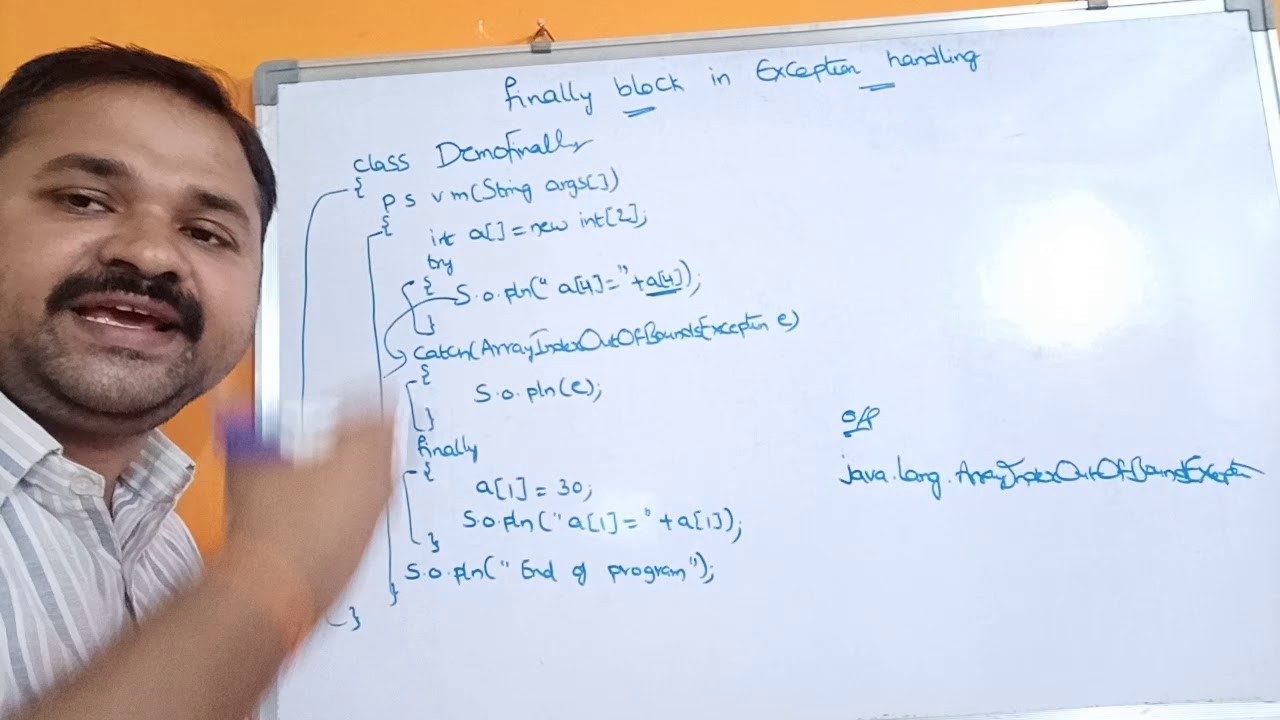 finally block in Exception handling
class Demofinally
{
p s v m(String args[])
{
int a[] = new int[2];
try
{
S.o.pln("a[4]="+a[4]);
}
catch(ArrayIndexOutOfBoundsException e)
{
S.o.pln(e);
}
finally
{
a[1] = 30;
S.o.pln("a[1]="+a[1]);
}
S.o.pln("End of program");
}
}
o/p
java.lang.ArrayIndexOutOfBoundsException